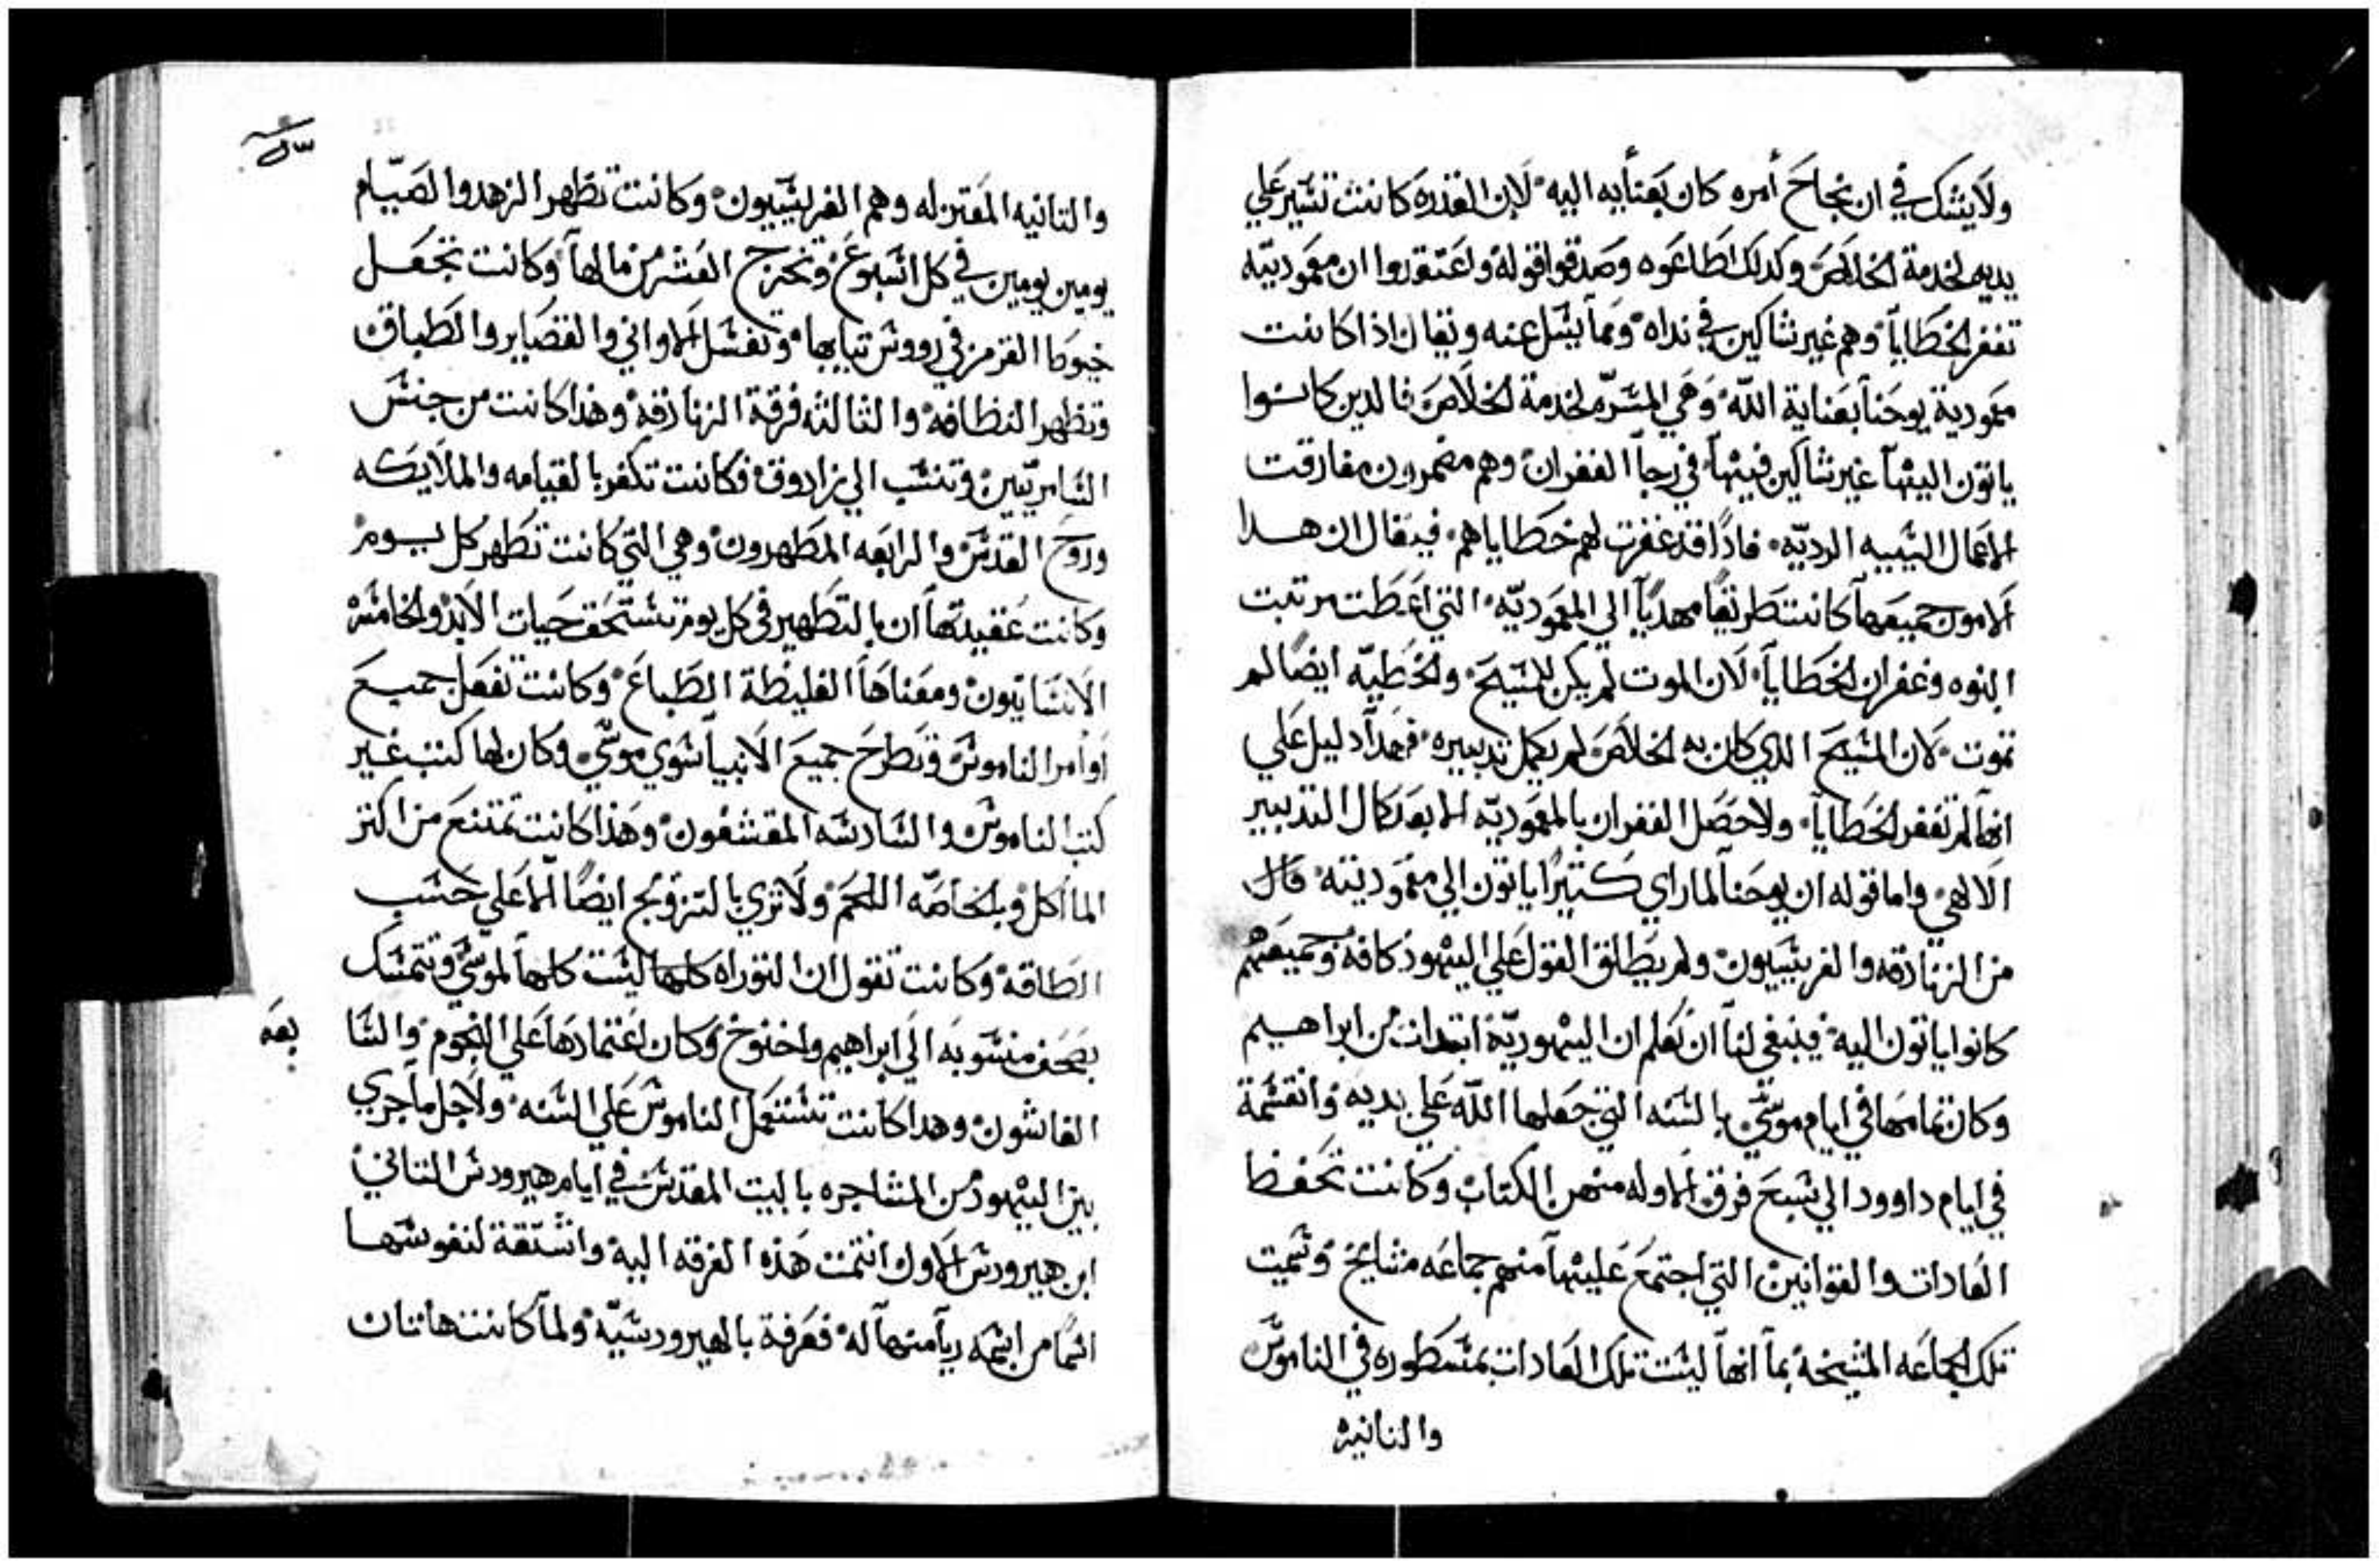 ولا يشك في ان نجاح أمره كان بعنأيه اليه لان القدره كانت تشير علي
يديه لخدمة الخلاص وكدلك اطاعوه وصدقوا قوله واعتقدوا ان معموديته
تغفر الخطايا وهم غير شاكين في نداه ومما يشل عنه ويقال اذا كانت
معمودية يوحنا بعناية الله وهي المشرّه لخدمة الخلاص فالدين كانوا
ياتون اليها غير شاكين فيها في رجا الغفران وهم مضمرون مفارقت
الاعمال السيه الرديّه فاذًا قد غفرت لهم خطاياهم فيقال ان هدا
الامور جميعها كانت طريقًا مهديًا الي المعموديّه التي اعطت مرتبت
البنوه وغفران الخطايا لان الموت لم يكن للمسيح والخطيّه ايضًا لم
تموت لان المسيح الدي كان به الخلاص لم يكمل تدبيره فهدا دليل علي
انها لم تغفر الخطايا ولا حصل الغفران بالمعموديّه الا بعد كمال التدبير
الالهي واما قوله ان يوحنا لما راي كتيرًا ياتون الي معموديته قال
من الزنادقه والفريسيون ولم يطلق القول علي اليهود كافه وجميعهم
كانوا ياتون اليه فينبغي لنا ان نعلم ان اليهوديّة ابتدات من ابراهيم
وكان تمامها في ايام موسي بالسنه التي جعلها الله علي يديه وانقسمة
في ايام داوود الي سبع فرق الاوله منهم الكتاب وكانت تحفظ
العادات والقوانين التي اجتمع عليها منهم جماعه مشايخ وسميت
تلك الجماعه المشيخة بما انها ليست تلك العادات بمسطوره في الناموس
والتانيه
والتانيه المعتزله وهم الفريسيون وكانت تظهر الزهد والصيام
يومين يومين في كل اسبوع وتخرج العشر من مالها وكانت تجعل
خيوط القرمز في رووس تيابها وتغسل الاواني والقصاير والطباق
وتظهر النظافه والثالثه فرقة الزنادقه وهذا كانت من جنس
السامريّين وتنسب الي زادوق فكانت تكفر بالقيامه والملايكه
وروح القدس والرابعه المطهرون وهي التي كانت تطهر كل يوم
وكانت عقيدتها ان بالتطهير في كل يوم تستحق حيات الابد والخامسه
الانسانيون ومعناها الغليظة الطباع وكانت تفعل جميع
اوامر الناموس وتطرح جميع الانبيا سوي موسي وكان لها كتب غير
كتب الناموس والسادسه المقشفون وهذا كانت تمتنع من اكتر
الماأكل وبلخاصّه اللحم ولا تري بالتزويج ايضًا الا علي حسب
الطاقه وكانت تقول ان التوراه كلها ليست كلها لموسي وتتمسك
بصحف منسوبه الي ابراهيم واخنوخ وكان اعتمادها علي النجوم والسا
بعه
الغاشون وهدا كانت تستعمل الناموس علي السنه ولاجل ما جري
بين اليهود من المشاجره بالبيت المقدس في ايام هيرودس التاني
ابن هيرودس الاول انتمت هذه الفرقه اليه وانشقة لنفوسها
اسمًا من اسمه ريآ منها له فعرفة بالهيرودسيّه ولما كانت هاتان